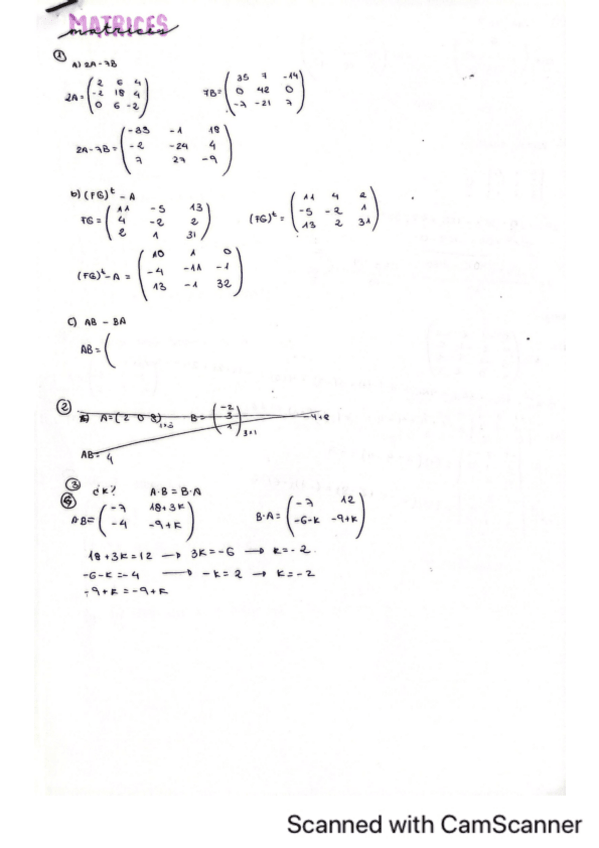 MATRICES
matrices
① A) 2A - 7B
2A = ( 2 6 4
-2 18 4
0 6 -2 )
7B = ( 35 7 -14
0 42 0
-7 -21 7 )
2A - 7B = ( -33 -1 18
-2 -24 4
7 27 -9 )
b) (FG)ᵗ - A
FG = ( 11 -5 13
4 -2 2
2 1 31 )
(FG)ᵗ = ( 11 4 2
-5 -2 1
13 2 31 )
(FG)ᵗ - A = ( 10 1 0
-4 -11 -1
13 -1 32 )
C) AB - BA
AB = (
②
A = ( 2 0 8 ) B = ( -2
3
1 )3x1
AB = 4
③
⑤ ¿K? A·B = B·A
A·B = ( -7 18+3K
-4 -9+K )
B·A = ( -7 12
-6-K -9+K )
18+3K = 12 → 3K = -6 → K = -2
-6-K = -4 → -K = 2 → K = -2
-9+K = -9+K
Scanned with CamScanner